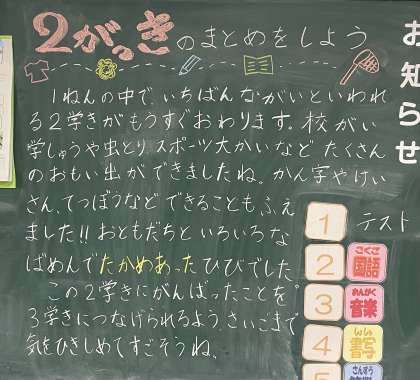 2がっきのまとめをしよう
1ねんの中で、いちばんながいといわれ
る2学きがもうすぐおわります。校がい
学しゅうや虫とり、スポーツ大かいなど たくさん
のおもい出ができましたね。かん字やけい
さん、てつぼうなど できることもふえ
ました!! おともだちと いろいろな
ばめんでたかめあったひびでした。
この2学きにがんばったことを
3学きにつなげられるよう、さいごまで
気をひきしめてすごそうね。
お知らせ
1 テスト
2 こくご 国語
3 おんがく 音楽
4 しょしゃ 書写
5 さんすう